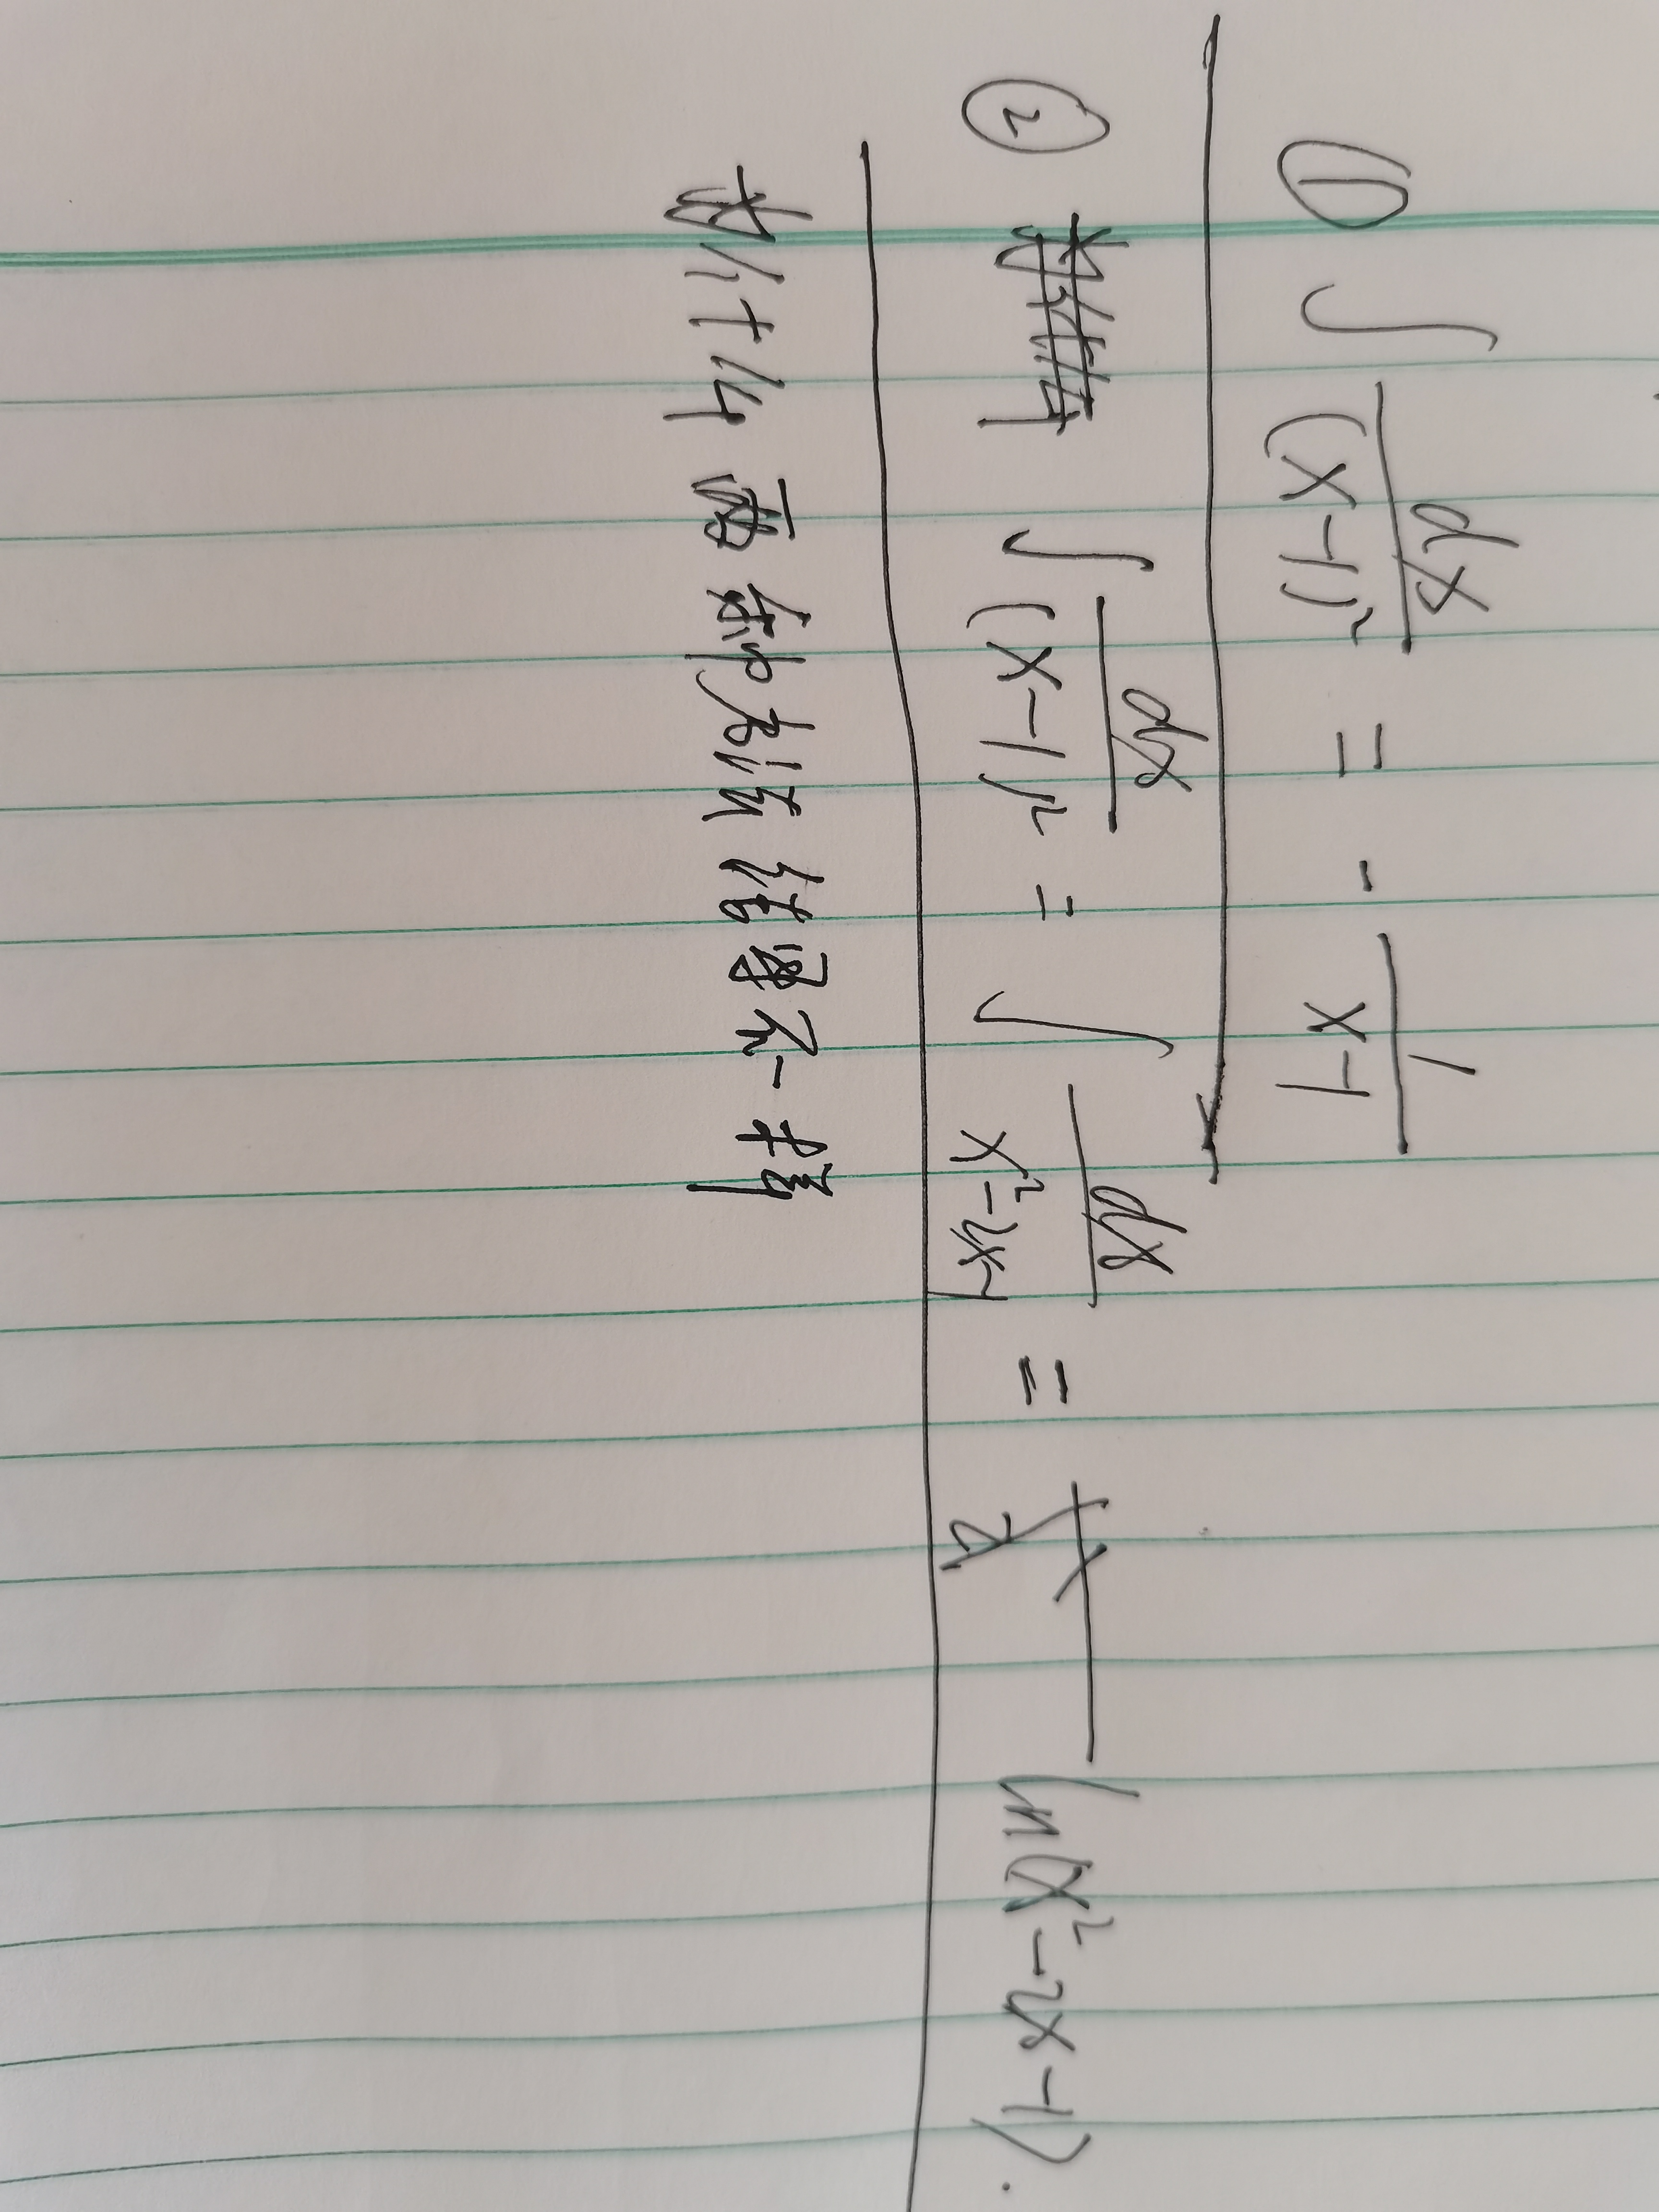 ① ∫ dx/(x-1)² = - 1/(x-1)
② ∫ dx/(x-1)² = ∫ dx/(x²-2x-1) = ln(x²-2x-1).
为什么 两种方法结果不一样